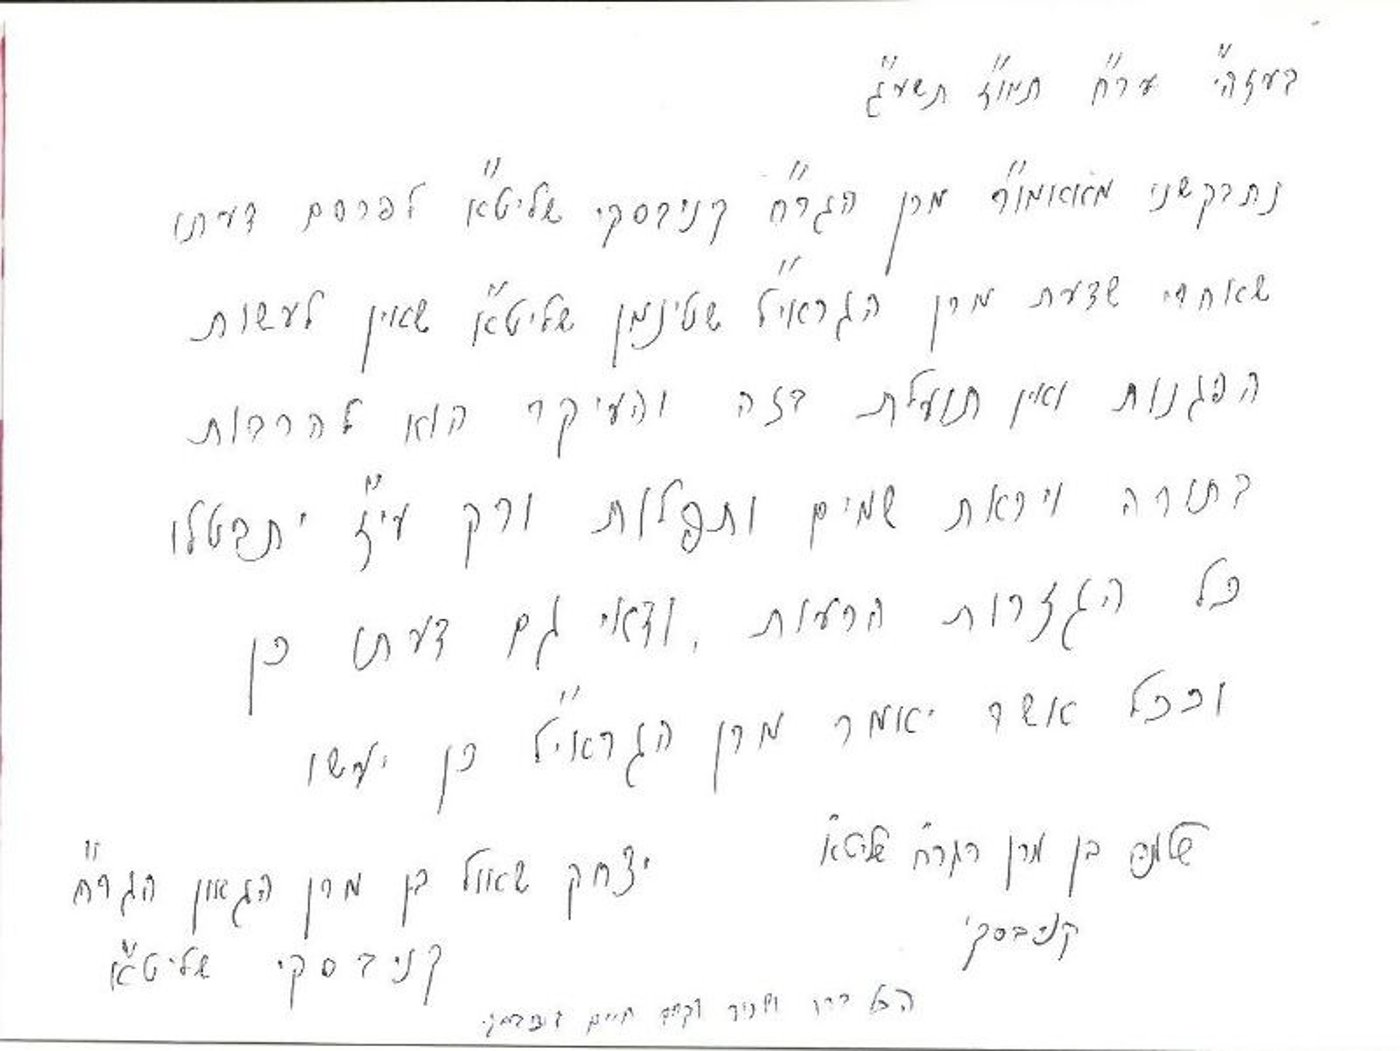 בעזהי״ ער״ח תמו״ז תשע״ג
נתבקשתי מאאמו״ר מרן הגר״ח קניבסקי שליט״א לפרסם דעתו
שאחרי שדעת מרן הגראי״ל שטינמן שליט״א שאין לעשות
הפגנות ואין תועלת בזה והעיקר הוא להרבות
בתורה ויראת שמים ותפלות ורק עי״ז יתבטלו
כל הגזרות הרעות, ודאי גם דעתו כן
וככל אשר יאמר מרן הגראי״ל כן יעשו
שלמה בן מרן הגר״ח שליט״א
קניבסקי
יצחק שאול בן מרן הגאון הגר״ח
קניבסקי שליט״א
הכל ברור חיים קניבסקי